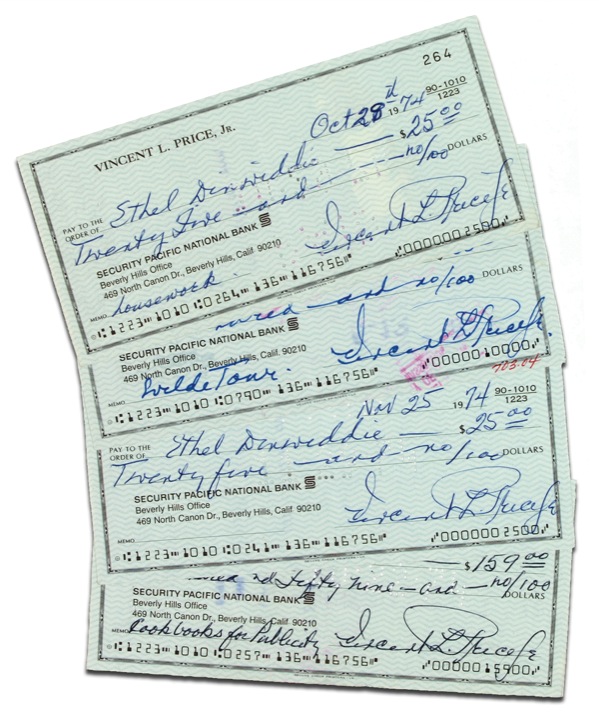 264
VINCENT L. PRICE, JR.
Oct 28th 1974 90-1010
1223
PAY TO THE
ORDER OF Ethel Dinwiddie — $ 25.00
Twenty five — and — no/100 DOLLARS
SECURITY PACIFIC NATIONAL BANK
Beverly Hills Office
469 North Canon Dr., Beverly Hills, Calif. 90210
MEMO housework. Vincent L. Price Jr
⑆1223⑉1010⑆0264⑉136⑉116756⑈ ⑈0000002500⑈
and no/100 DOLLARS
SECURITY PACIFIC NATIONAL BANK
Beverly Hills Office
469 North Canon Dr., Beverly Hills, Calif. 90210
MEMO Wilde Tour. Vincent L. Price Jr.
⑆1223⑉1010⑆0790⑉136⑉116756⑈ ⑈0000010000⑈
703.04
Nov 25 1974 90-1010
1223
PAY TO THE
ORDER OF Ethel Dinwiddie — $ 25.00
Twenty five — and — no/100 DOLLARS
SECURITY PACIFIC NATIONAL BANK
Beverly Hills Office
469 North Canon Dr., Beverly Hills, Calif. 90210
MEMO Vincent L. Price Jr
⑆1223⑉1010⑆0241⑉136⑉116756⑈ ⑈0000002500⑈
— $ 159.00
nd fifty nine — and — no/100
SECURITY PACIFIC NATIONAL BANK
Beverly Hills Office
469 North Canon Dr., Beverly Hills, Calif. 90210
MEMO Cookbooks for Publicity Vincent L. Price Jr
⑆1223⑉1010⑆0257⑉136⑉116756⑈ ⑈0000015900⑈